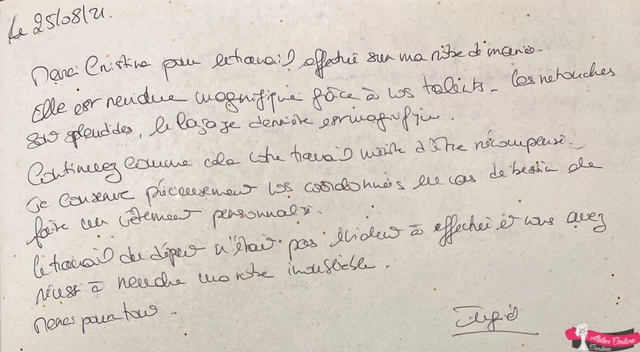 Le 25/08/21.
Merci Cristina pour le travail effectué sur ma robe de mariée.
Elle est rendue magnifique grâce à vos talents. Les retouches
son splendides, le laçage derrière est magnifique.
Continuez comme cela votre travail mérite d'être récompensé.
Je conserve précieusement vos coordonnées en cas de besoin de
faire un vêtement personnalisé.
le travail du départ n'était pas évident à effectuer et vous avez
réussi à rendre ma robe inoubliable.
Merci pour tout.
Atelier Couture